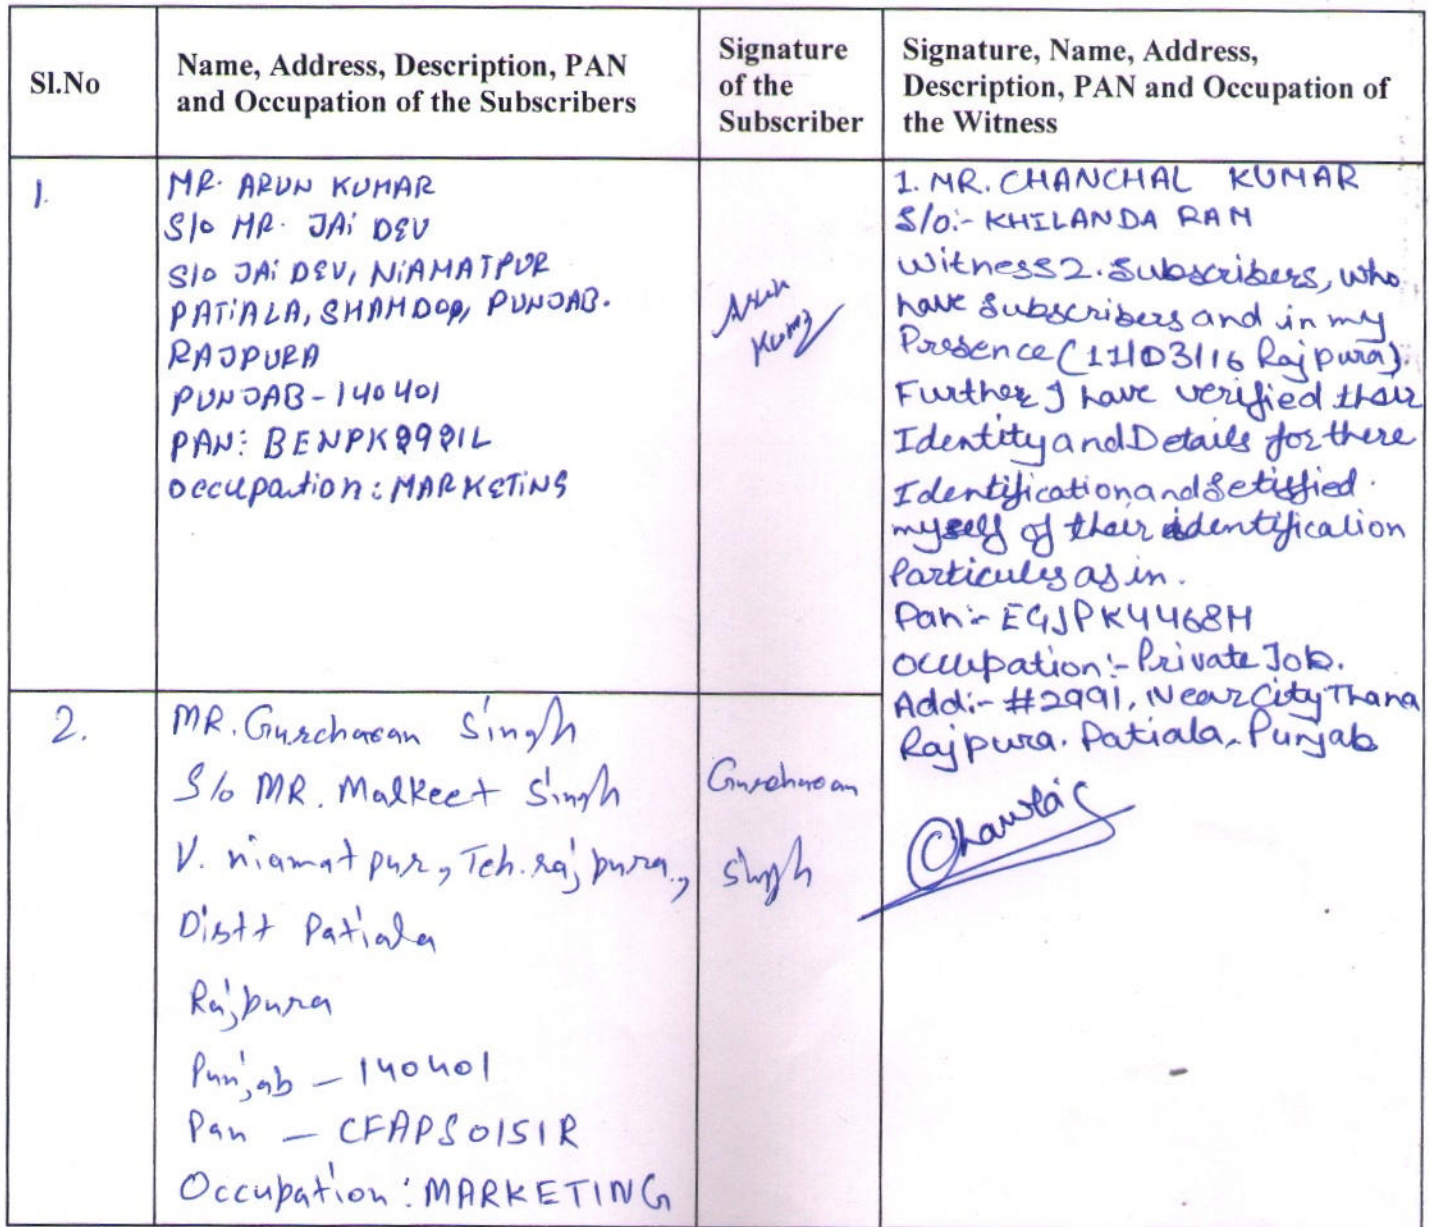 Sl.No
Name, Address, Description, PAN
and Occupation of the Subscribers
Signature
of the
Subscriber
Signature, Name, Address,
Description, PAN and Occupation of
the Witness
1.
MR. ARUN KUMAR
S/o MR. JAi DEV
S/o JAi DEV, NiAMATPUR
PATiALA, SHAMDOO, PUNJAB.
RAJPURA
PUNJAB-140401
PAN: BENPK9991L
Occupation: MARKETiNG
Arun
Kumar
1. MR. CHANCHAL KUMAR
S/o:- KHILANDA RAM
Witness 2. Subscribers, who
have Subscribers and in my
Presence (11/03/16 Rajpura).
Further I have verified their
Identity and Details for there
Identification and Setisfied
myself of their identification
Particulrs as in.
Pan:- EGJPK4468H
Occupation:- Private Job.
Add:- #2991, Near City Thana
Rajpura. Patiala, Punjab
2.
MR. Gurcharan Singh
S/o MR. Malkeet Singh
V. niamatpur, Teh. rajpura,
Distt Patiala
Rajpura
Punjab - 140401
Pan - CFAPS0151R
Occupation: MARKETING
Gurcharan
Singh